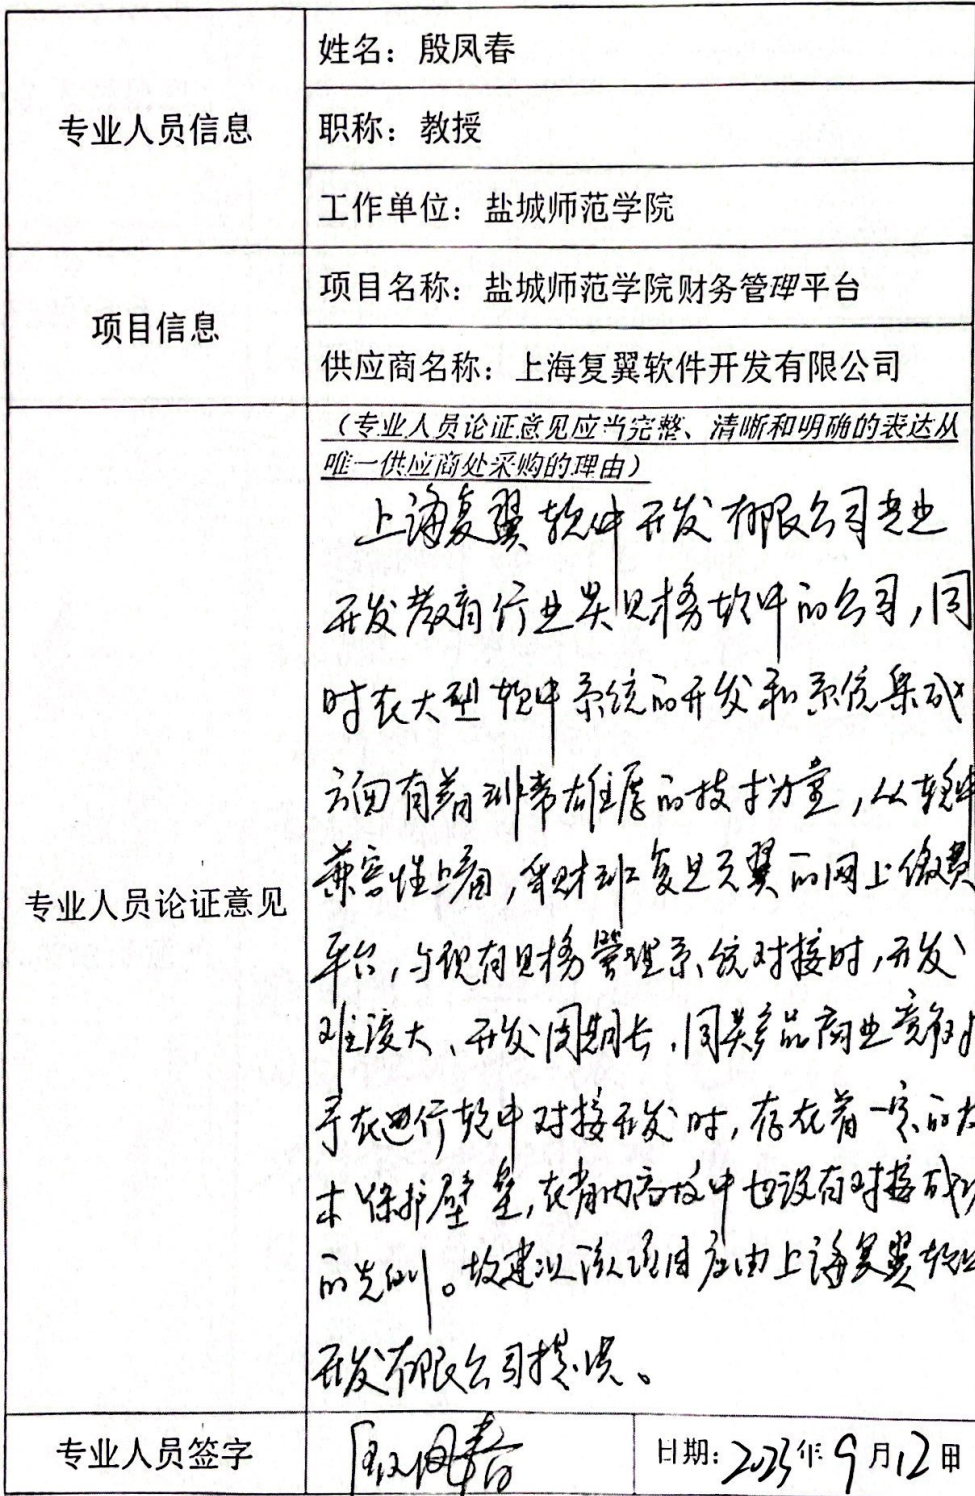 专业人员信息
姓名：殷凤春
职称：教授
工作单位：盐城师范学院
项目信息
项目名称：盐城师范学院财务管理平台
供应商名称：上海复翼软件开发有限公司
专业人员论证意见
（专业人员论证意见应当完整、清晰和明确的表达从
唯一供应商处采购的理由）
上海复翼软件开发有限公司专业
开发教育行业类财务软件的公司，同
时在大型软件系统的开发和系统集成
方面有着非常雄厚的技术力量，从软件
兼容性上看，复旦天翼的网上缴费
平台，与现有财务管理系统对接时，开发
难度大、开发周期长，同类产品商业竞争对
手在进行软件对接开发时，存在着一定的技
术保护壁垒，在省内高校中也没有对接成功
的先例。故建议该项目应由上海复翼软件
开发有限公司提供。
专业人员签字
殷凤春
日期：2023年9月12日